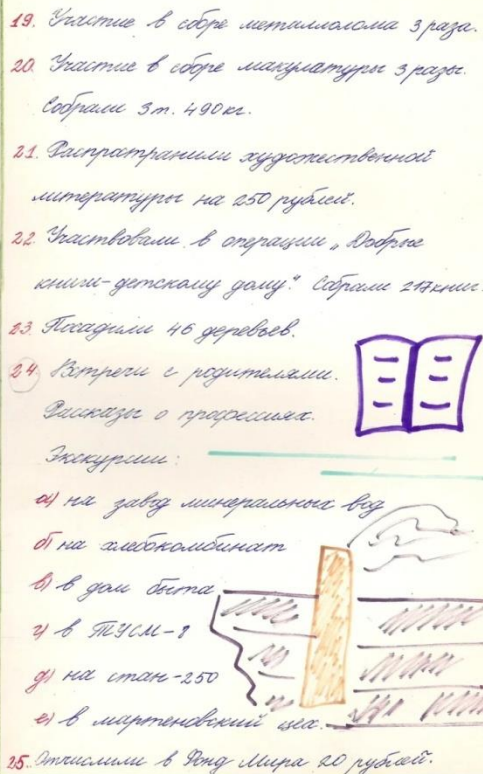 19. Участие в сборе металлолома 3 раза.
20. Участие в сборе макулатуры 3 разы.
Собрали 3 т. 490 кг.
21. Распрастранили художественной
литературы на 250 рублей.
22. Участвовали в операции „Добрые
книги - детскому дому." Собрали 217 книг.
23. Посадили 46 деревьев.
24. Встречи с родителями.
Рассказы о профессиях.
Экскурсии:
а) на завод минеральных вод
б) на хлебокомбинат
в) в дом быта
г) в ТУСМ-8
д) на стан-250
е) в мартеновский цех.
25. Отчислили в Фонд Мира 20 рублей.